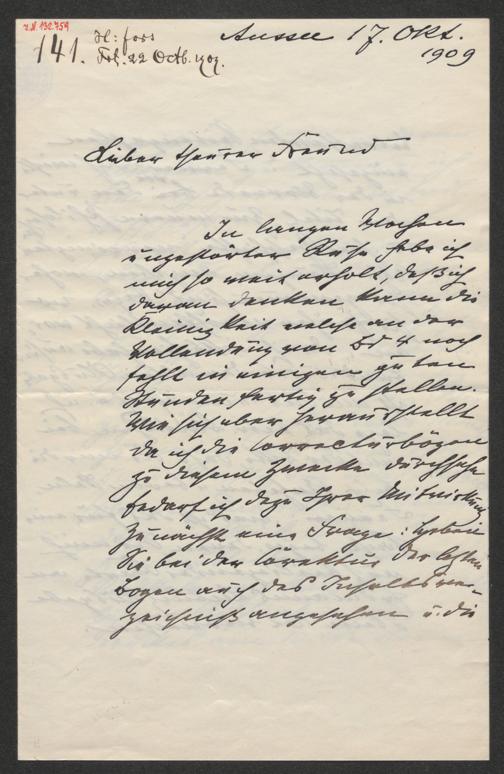 I.N. 132.759
141.
Aussee 17. Okt.
1909
22 Octb. 1909.
Lieber theurer Freund
In langen Wochen
ungestörter Ruhe habe ich
mich so weit erholt, daß ich
daran denken kann die
Kleinigkeit welche an der
Vollendung von Bd 4 noch
fehlt in einigen guten
Stunden fertig zu stellen.
Wie sich aber herausstellt
da ich die Correcturbögen
zu diesem Zwecke durchsehe
bedarf ich dazu Ihrer Mitwirkung
Zunächst eine Frage: haben
Sie bei der Corektur der letzten
Bogen auch das Inhaltsver-
zeichniß angesehen u. die